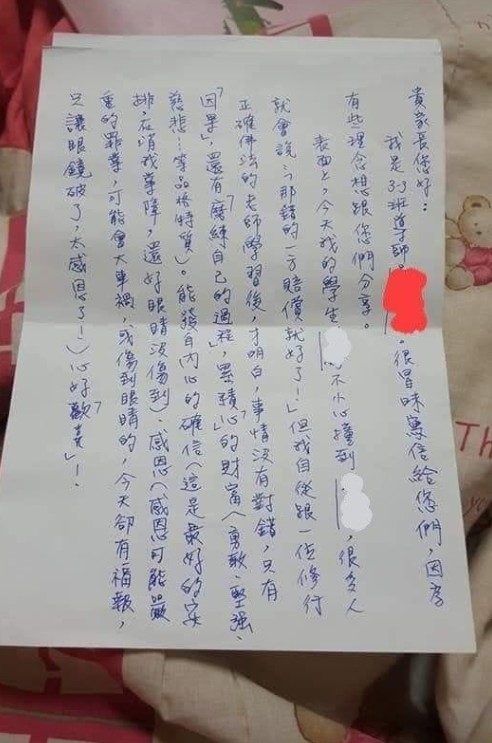 貴家長您好：
我是3-3班導師。很冒昧寫信給您們，因為
有些理念想跟您們分享。
表面上，今天我的學生不小心撞到，很多人
就會說：「那錯的一方賠償就好了！」但我自從跟一位修行
正確佛法的老師學習後，才明白，事情沒有對錯，只有
「因果」，還有磨練自己的「過程」，累積「心」的財富（勇敢、堅強、
慈悲…等品格特質）。能發自內心的確信（這是最好的安
排，在消我業障，還好眼睛沒傷到）、感恩（感恩可能嚴
重的罪業，可能會大車禍，或傷到眼睛的，今天卻有福報，
只讓眼鏡破了，太感恩了！）心好「歡喜」！